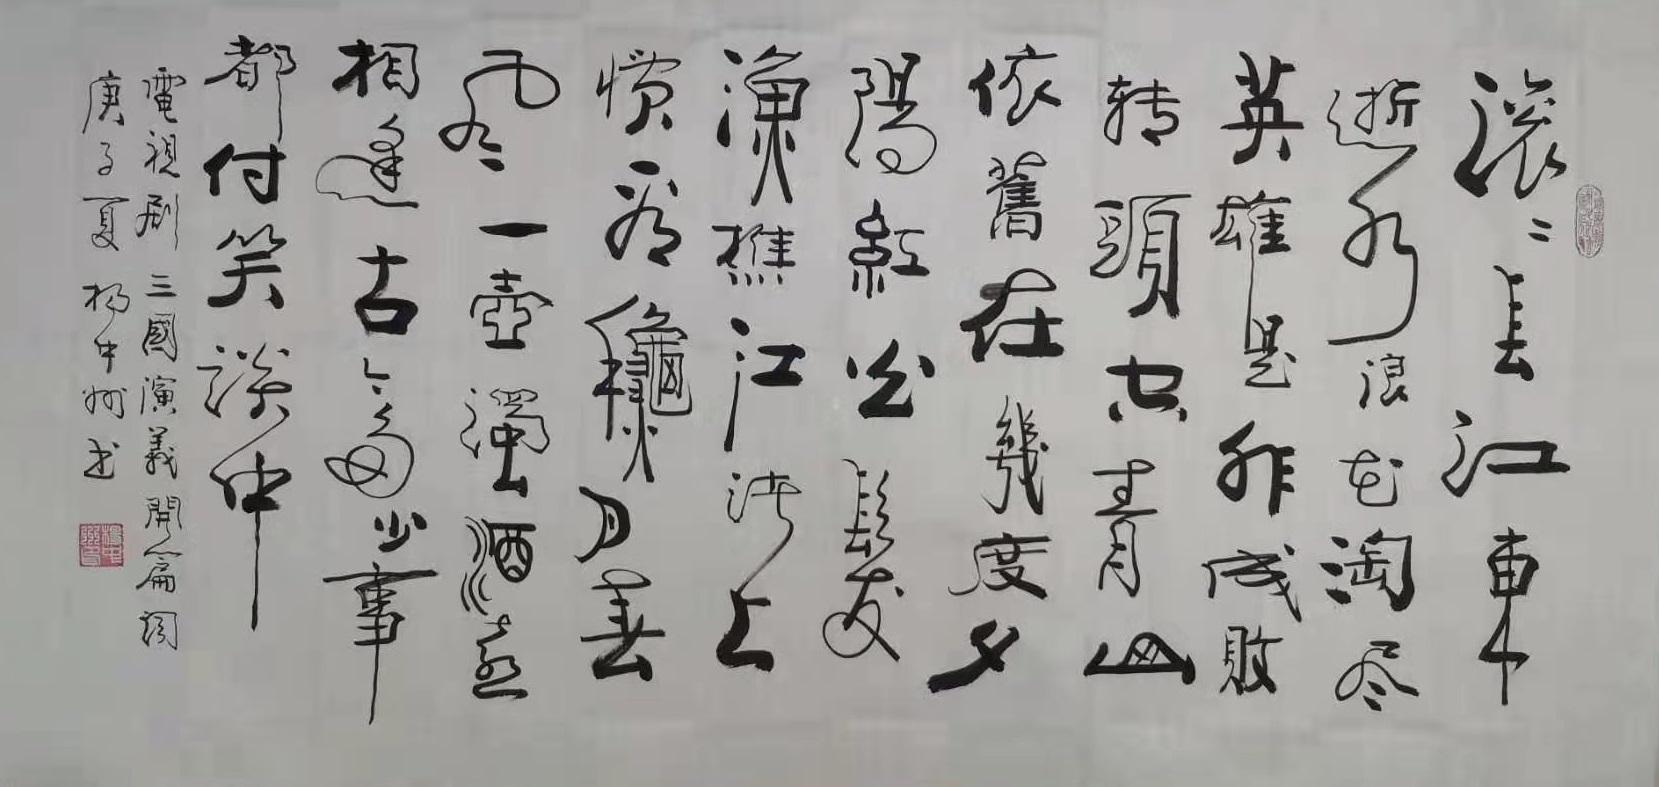 滚〻長江東
逝水浪花淘尽
英雄是非成敗
转頭空青山
依舊在幾度夕
陽紅白髮
漁樵江渚上
惯看龝月春
风一壺濁酒喜
相逢古今多少事
都付笑談中
電視剧三國演義開篇词
庚子夏杨中州书